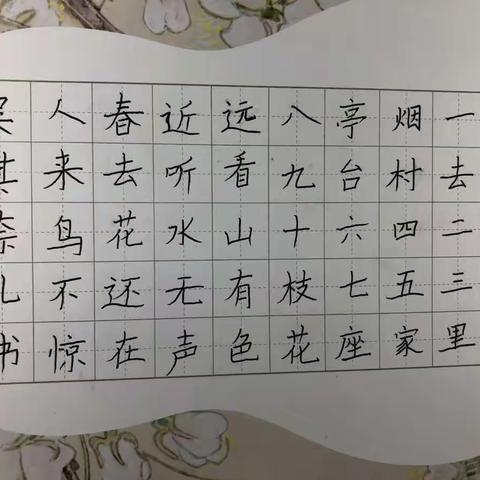 一去二三里
烟村四五家
亭台六七座
八九十枝花
远看山有色
近听水无声
春去花还在
人来鸟不惊